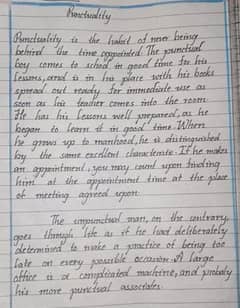 Punctuality
Punctuality is the habit of never being
behind the time appointed. The punctual
boy comes to school in good time for his
lessons, and is in his place with his books
spread out ready for immediate use as
soon as his teacher comes into the room
He has his lessons well prepared, as he
began to learn it in good time. When
he grows up to manhood, he is distinguished
by the same excellent characteristic. If he makes
an appointment, you may count upon finding
him at the appointment time at the place
of meeting agreed upon
The unpunctual man, on the contrary,
goes through life as if he had deliberately
determined to make a practice of being too
late on every possible occasion. A large
office is a complicated machine, and
his more punctual associates.